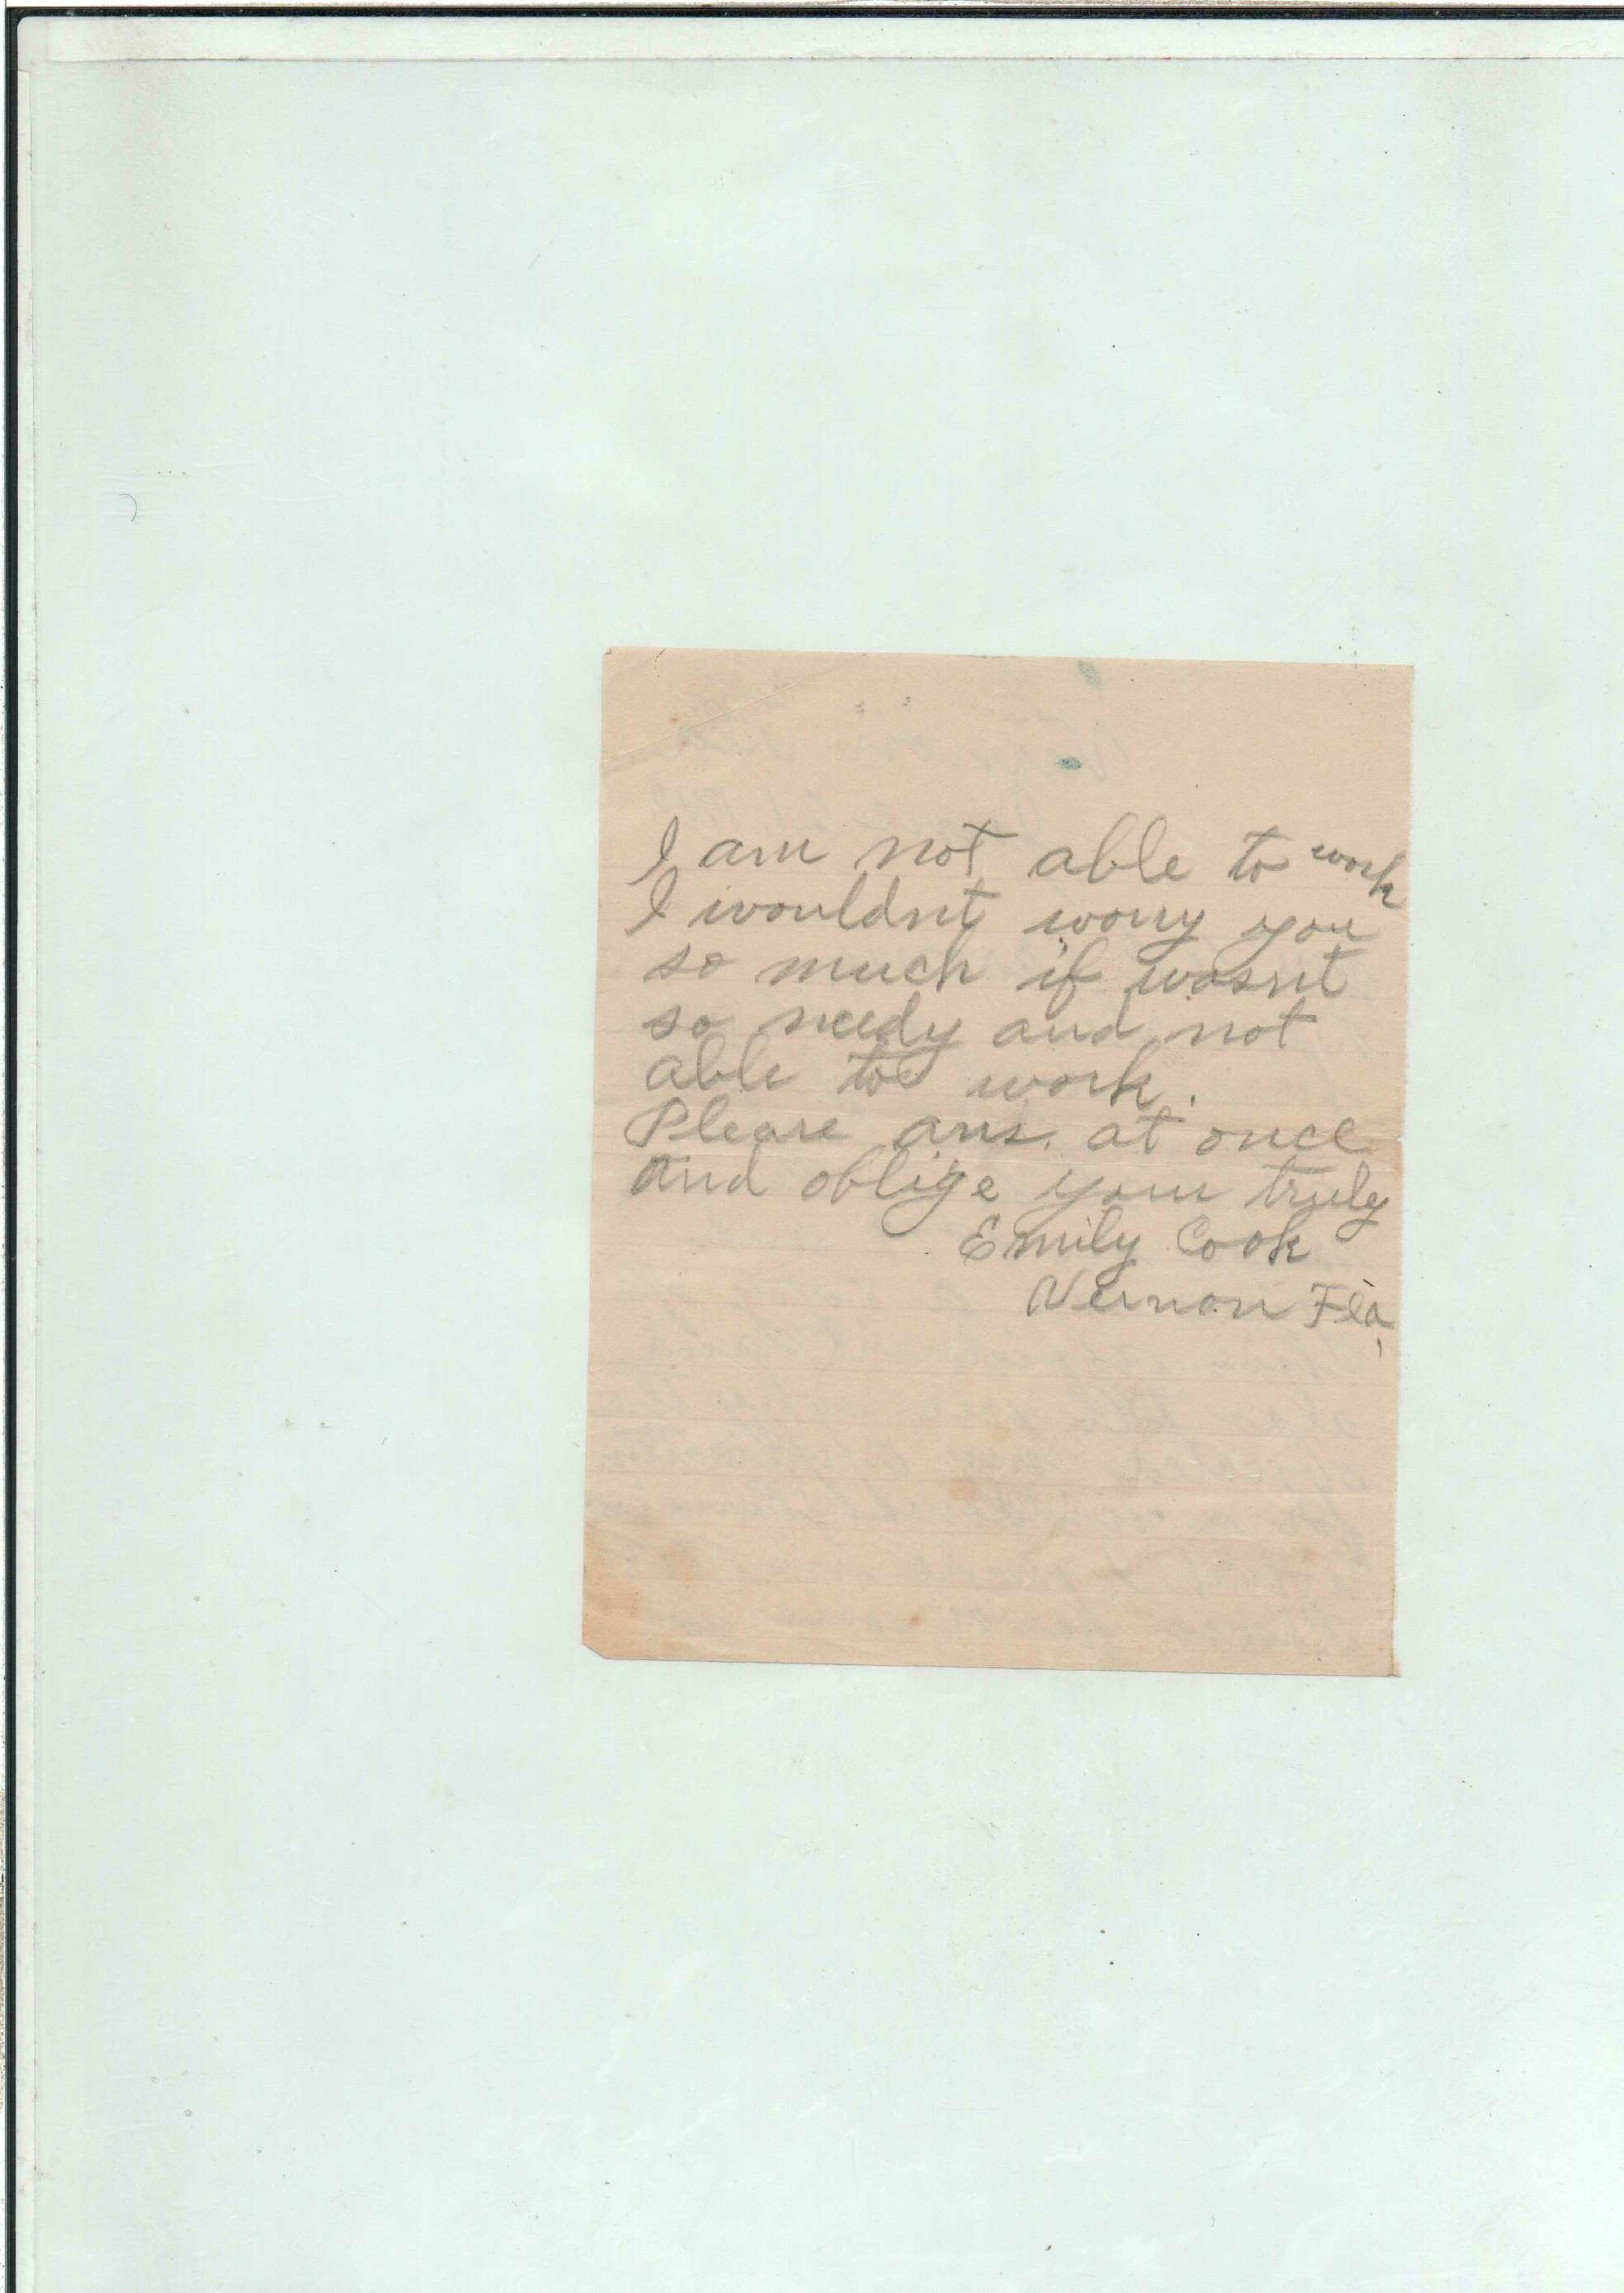 I am not able to work
I wouldnt worry you
so much if wasnt
so needy and not
able to work.
Please ans. at once
and oblige your truly
Emily Cook
Vernon Fla,